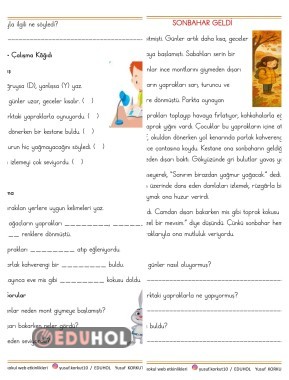 yla ilgili ne söyledi?
- Çalışma Kâğıdı
ğruysa (D), yanlışsa (Y) yaz.
günler uzar, geceler kısalır. ( )
rktaki yapraklarla oynuyordu. ( )
dönerken bir kestane buldu. ( )
urun hiç yağmayacağını söyledi. ( )
ı izlemeyi çok seviyordu. ( )
ma
rakılan yerlere uygun kelimeleri yaz.
ağaçların yaprakları
renklere dönmüştü.
aprakları atıp eğleniyordu.
ılak kahverengi bir buldu.
ayınca eve mis gibi kokusu doldu.
Sorular
anlar neden mont giymeye başlamıştı?
arı bakarken neler gördü?
eden sev
EDUHOL
okul web etkinlikleri yusuf.korkut10 / EDUHOL Yusuf KORKUT
SONBAHAR GELDİ
itmişti. Günler artık daha kısa, geceler
aya başlamıştı. Sabahları serin bir
nlar ince montlarını giymeden dışarı
ların yaprakları sarı, turuncu ve
e dönmüştü. Parkta oynayan
prakları toplayıp havaya fırlatıyor, kahkahalarla eğ
aprak yığını vardı. Çocuklar bu yaprakların içine at
f, okuldan dönerken yol kenarında parlak kahvereng
ce çantasına koydu. Kestane ona sonbaharın geldiğ
enden dışarı baktı. Gökyüzünde gri bulutlar yavaş ya
eyerek, "Sanırım birazdan yağmur yağacak." dedi.
üzerinde dans eden damlaları izlemek, rüzgârla bi
mak ona huzur verirdi.
dı. Camdan dışarı bakarken mis gibi toprak kokusu
el bir mevsim." diye düşündü. Çünkü sonbahar hem
aklarıyla ona mutluluk veriyordu.
günler nasıl oluyormuş?
rktaki yapraklarla ne yapıyormuş?
buldu?
okul web etkinlikleri yusuf.korkut10 / EDUHOL Yusuf KORKUT